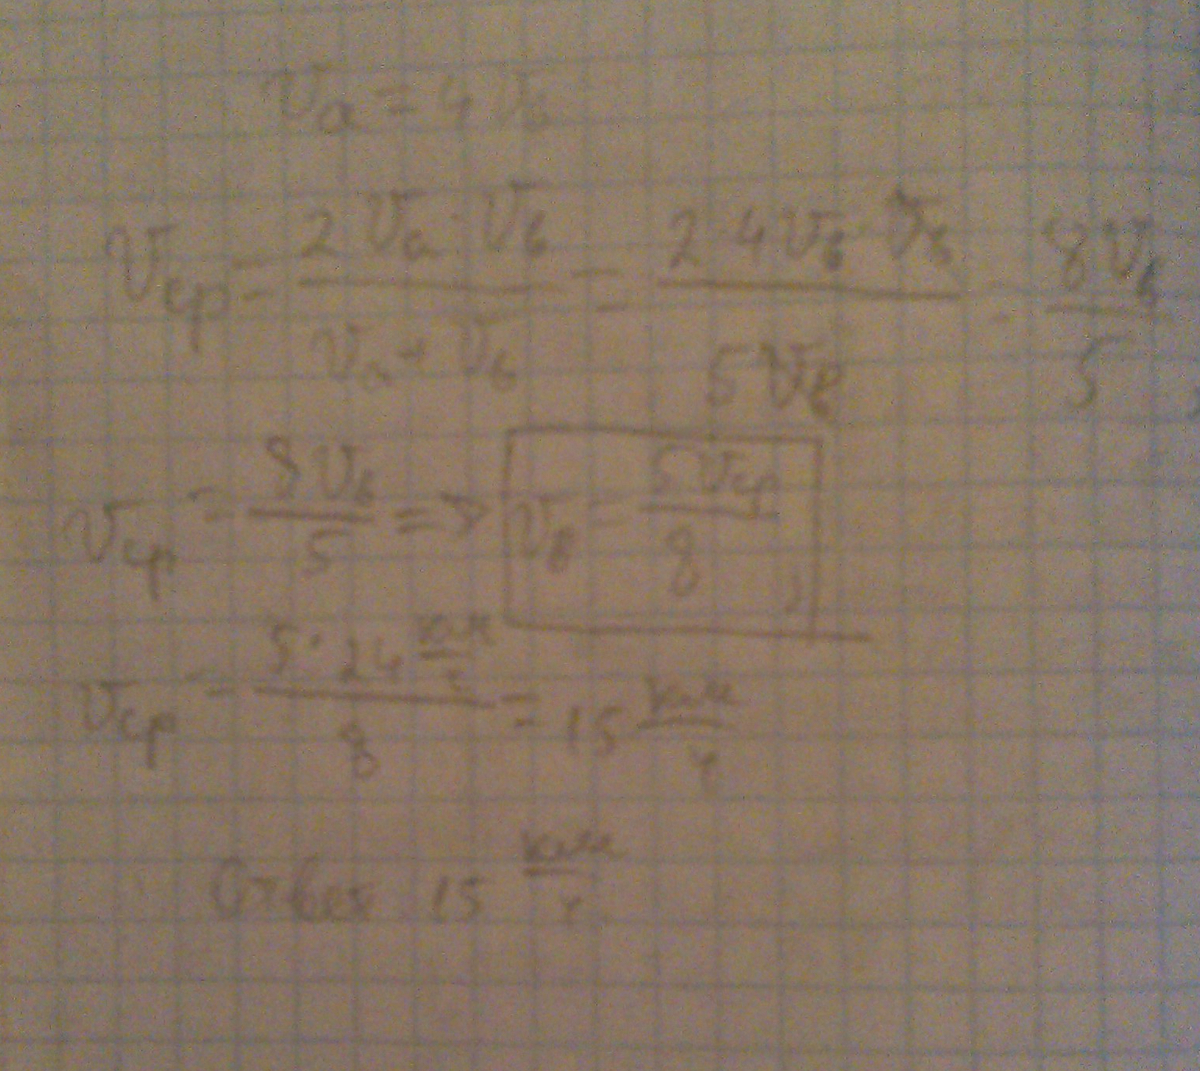 Va = 4Vв
Vср = 2Va·Vв / Va+Vв = 2·4Vв·Vв / 5Vв = 8Vв / 5
Vср = 8Vв / 5 => Vв = 5Vср / 8
Vср = 5·24 км/ч / 8 = 15 км/ч
Ответ 15 км/ч